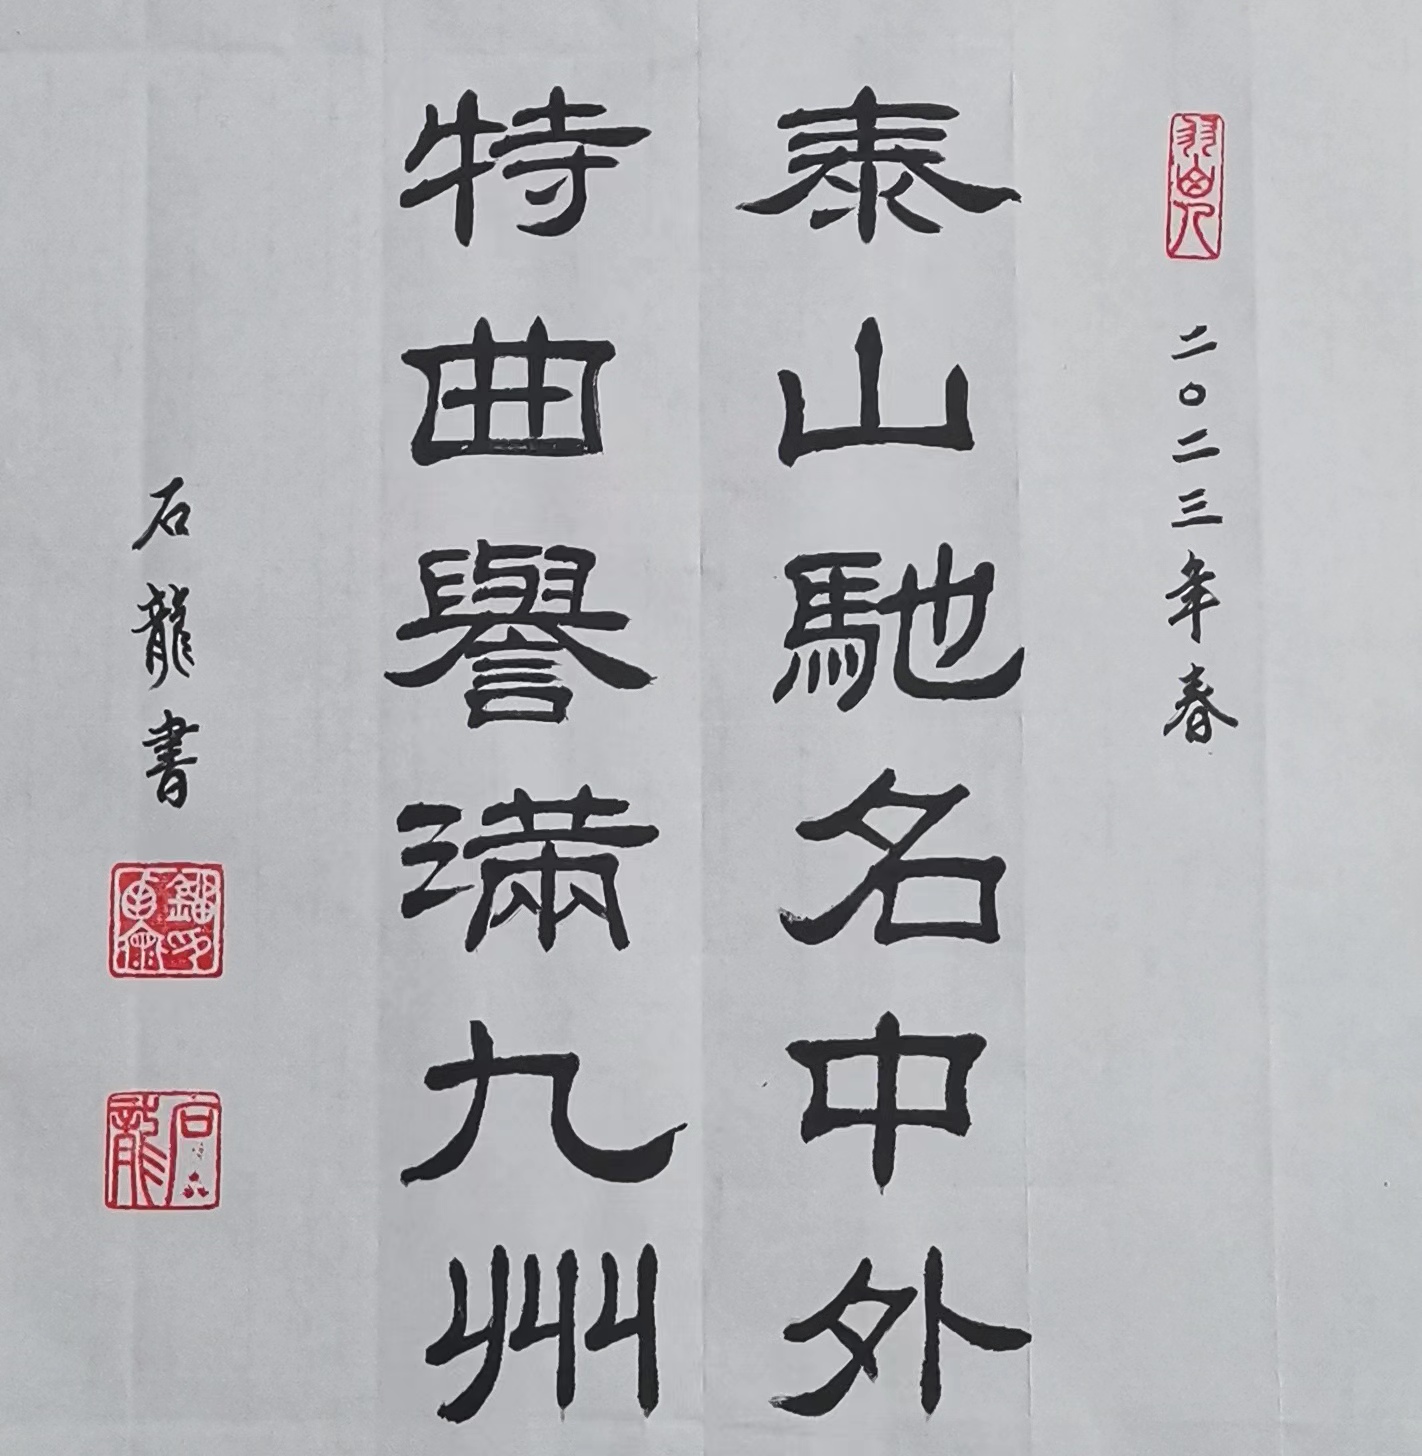 二〇二三年春
泰山馳名中外
特曲譽滿九州
石龍書
石龍